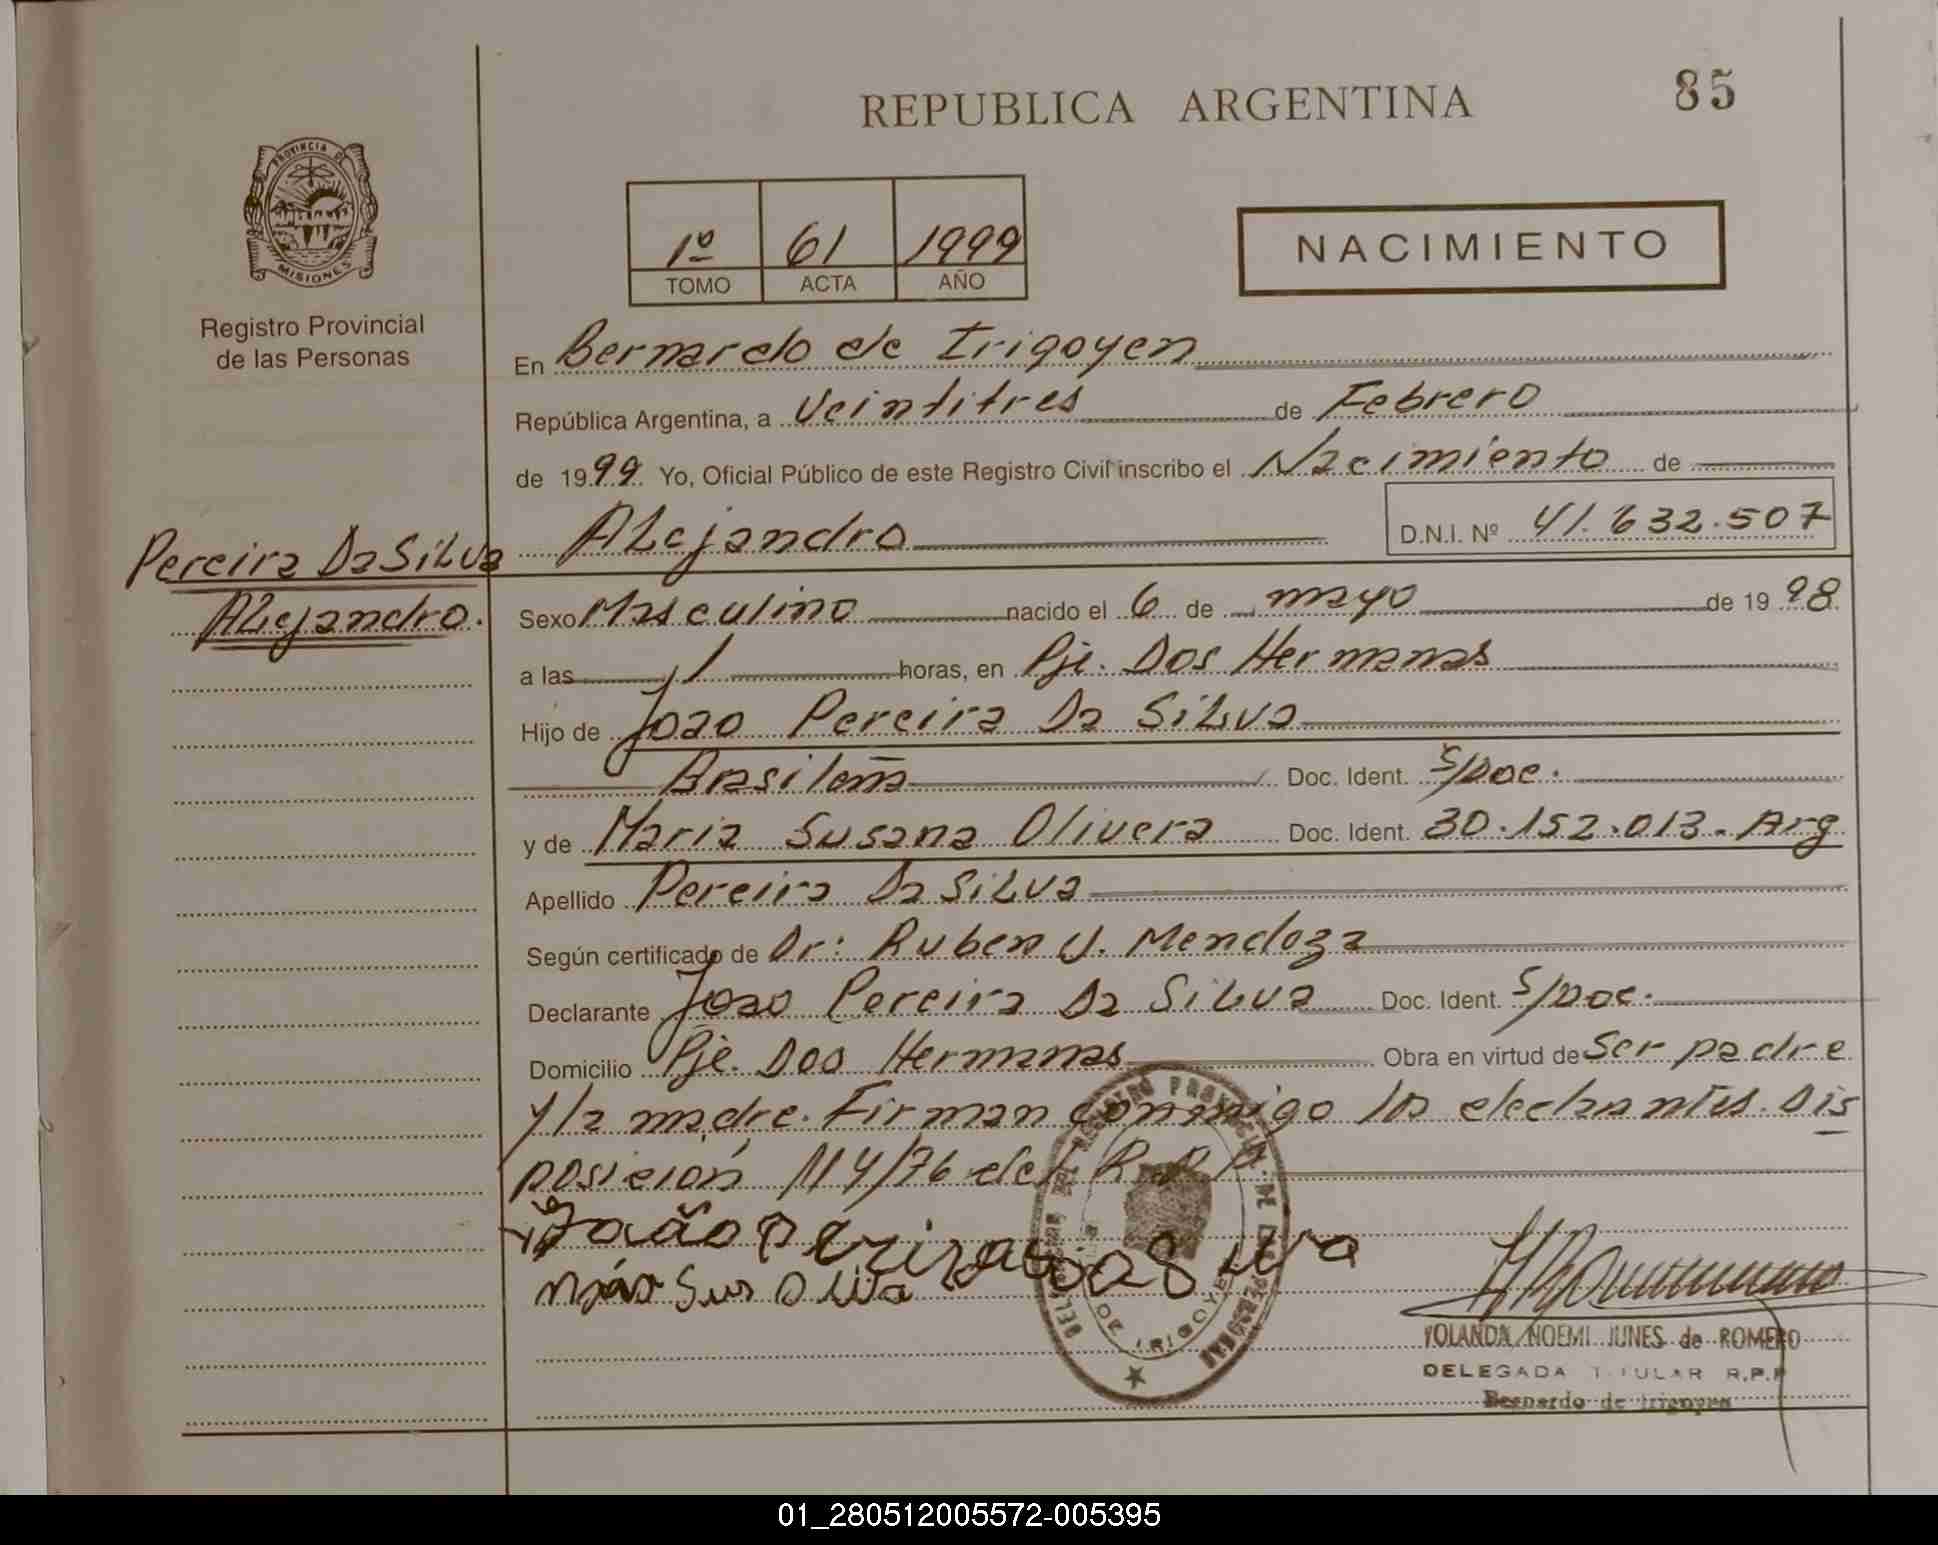 REPUBLICA ARGENTINA
85
PROVINCIA DE
MISIONES
Registro Provincial
de las Personas
1º 61 1999
TOMO ACTA AÑO
NACIMIENTO
En Bernardo de Irigoyen
República Argentina, a Veintitres de Febrero
de 1999 Yo, Oficial Público de este Registro Civil inscribo el Nacimiento de
Alejandro D.N.I. Nº 41.632.507
Pereira Da Silva
Alejandro.
Sexo Masculino nacido el 6 de mayo de 1998
a las 1 horas, en Pje. Dos Hermanas
Hijo de Joao Pereira Da Silva
Brasileña Doc. Ident. S/Doc.
y de Maria Susana Olivera Doc. Ident. 30.152.013. Arg
Apellido Pereira Da Silva
Según certificado de Dr: Ruben U. Mendoza
Declarante Joao Pereira Da Silva Doc. Ident. S/Doc.
Domicilio Pje. Dos Hermanas Obra en virtud de Ser padre
y la madre. Firman conmigo los declarantes. Dis
posición 114/76 del R.P.P.
João
DE IRIGOYEN
YOLANDA NOEMI JUNES de ROMERO
DELEGADA TITULAR R.P.P
Bernardo de Irigoyen
01_280512005572-005395